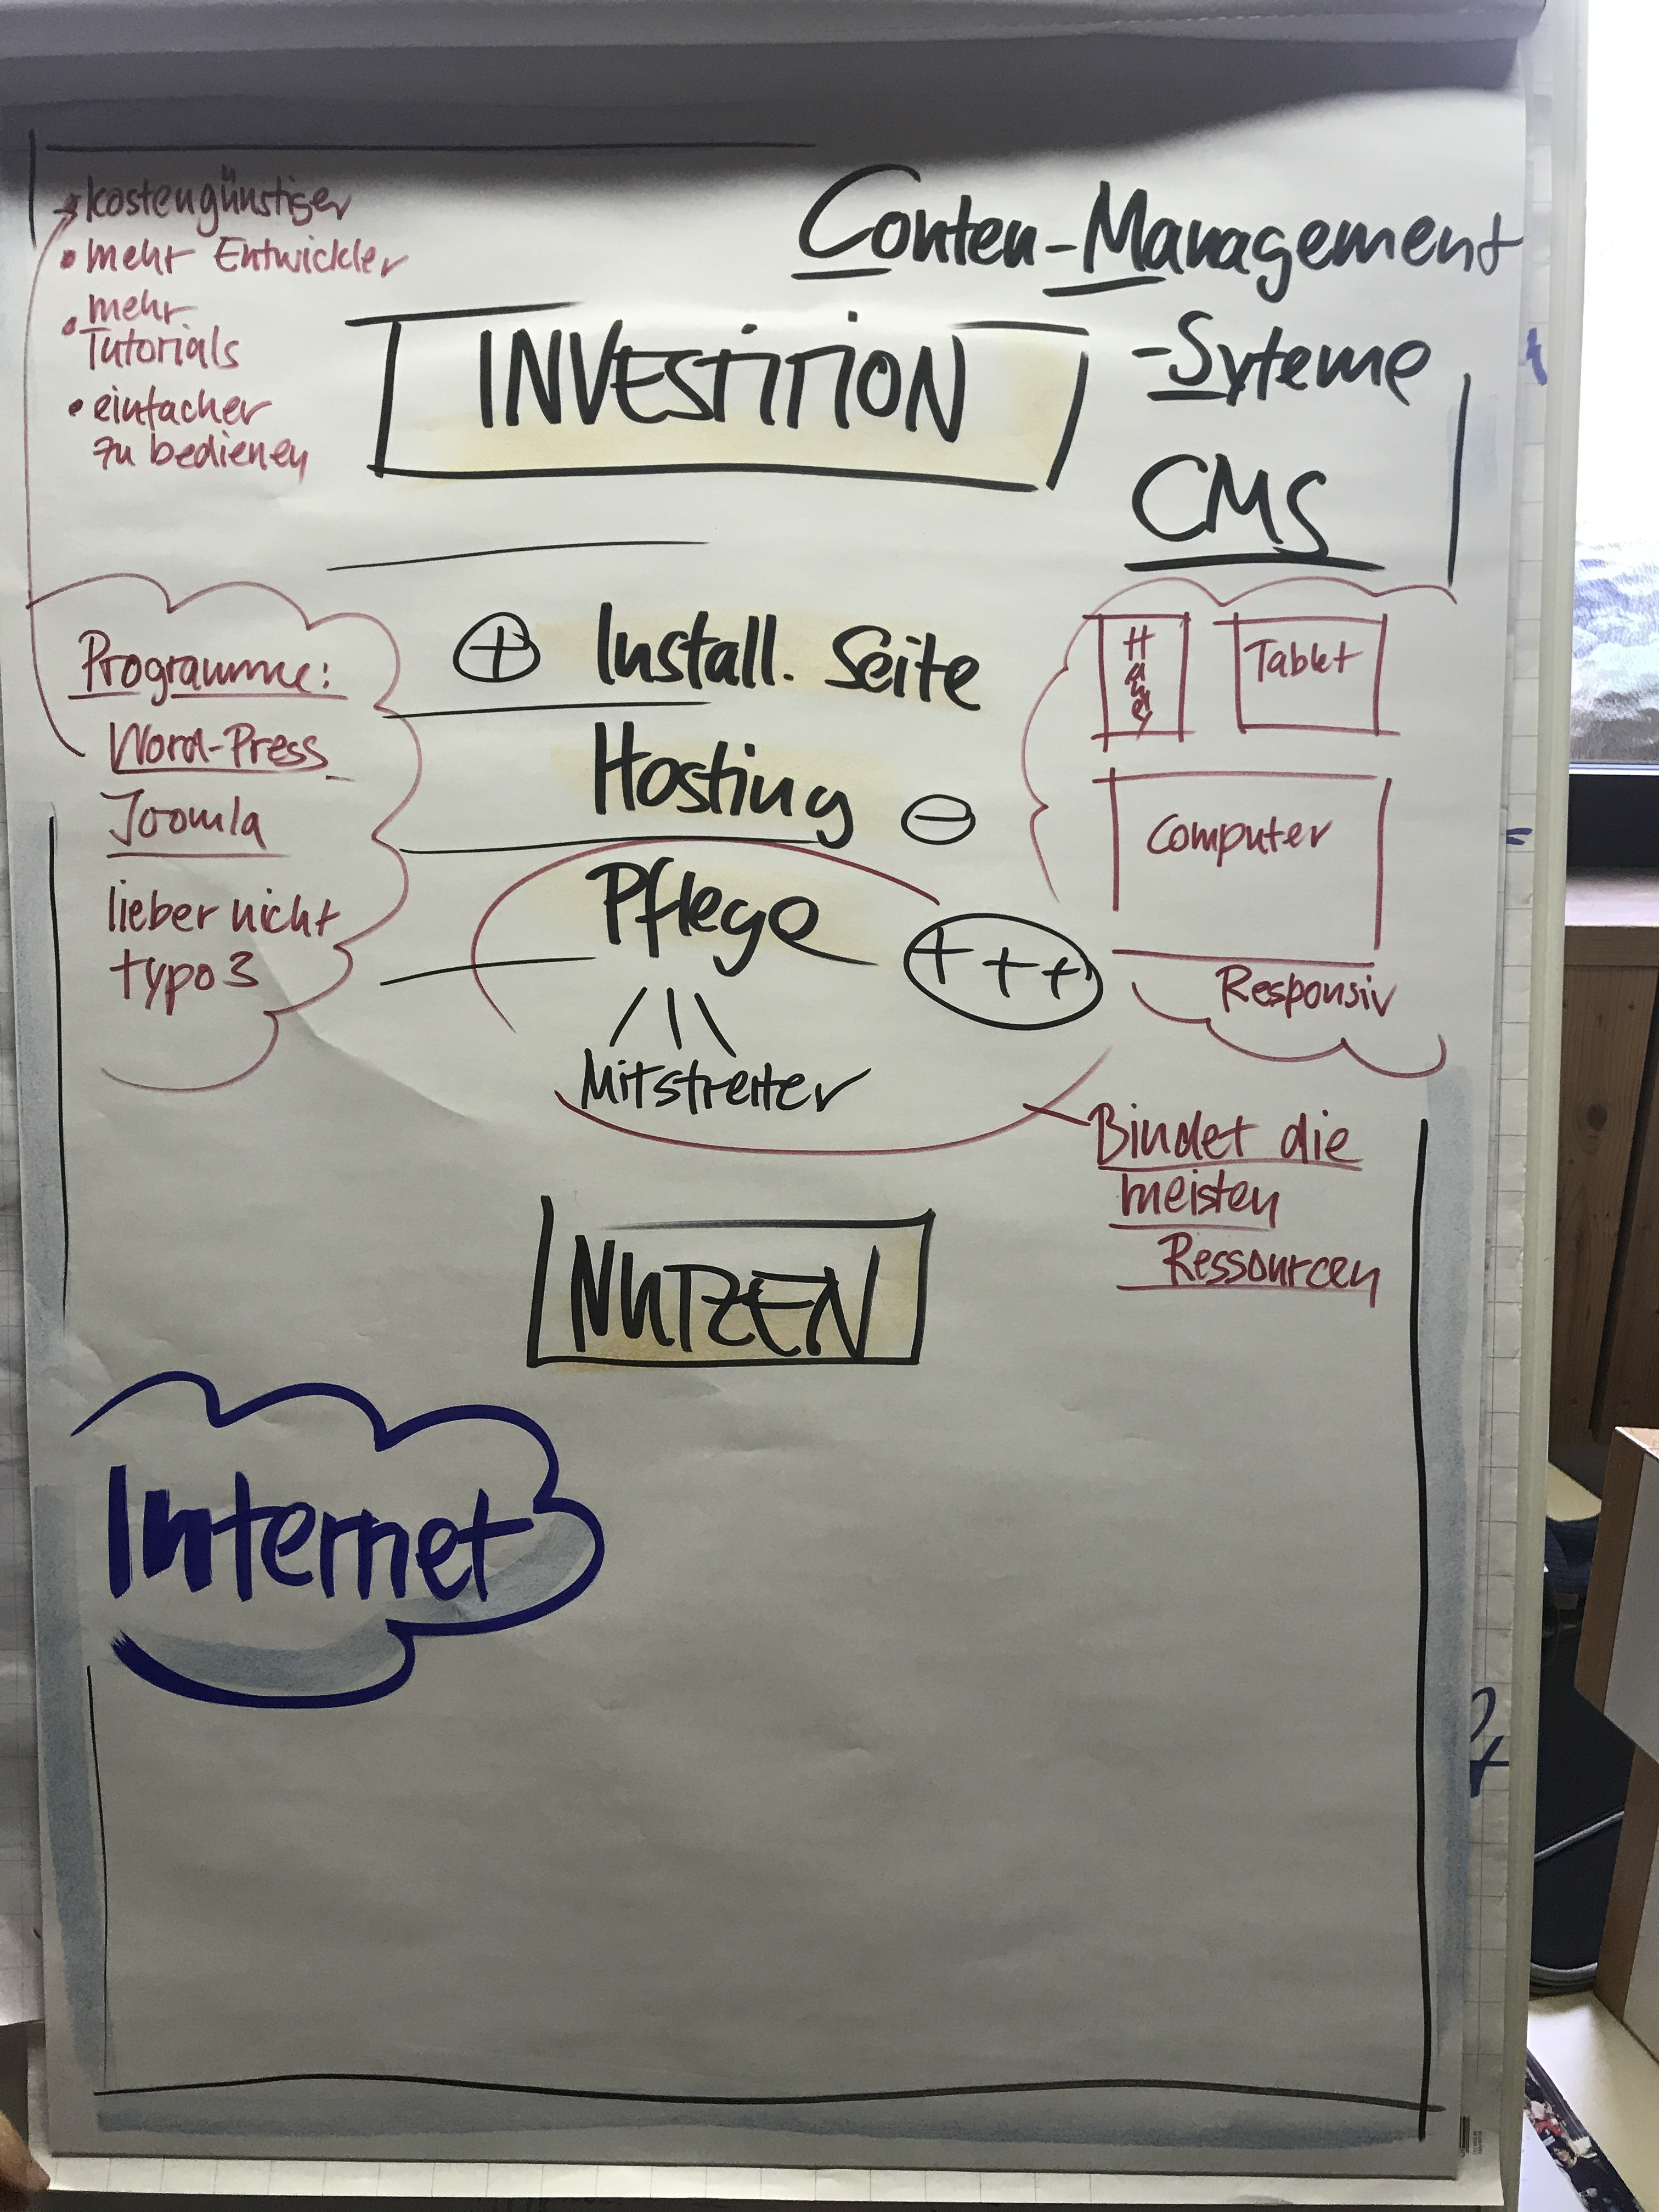 kostengünstiger
• mehr Entwickler
• mehr
Tutorials
• einfacher
zu bedienen
Conten-Management
-Syteme
CMS
INVESTITION
Programme:
Word-Press
Joomla
lieber nicht
typo3
+ Install. Seite
Hosting -
Pflege +++
Mitstreiter
Handy
Tablet
Computer
Responsiv
Bindet die
meisten
Ressourcen
NUTZEN
Internet